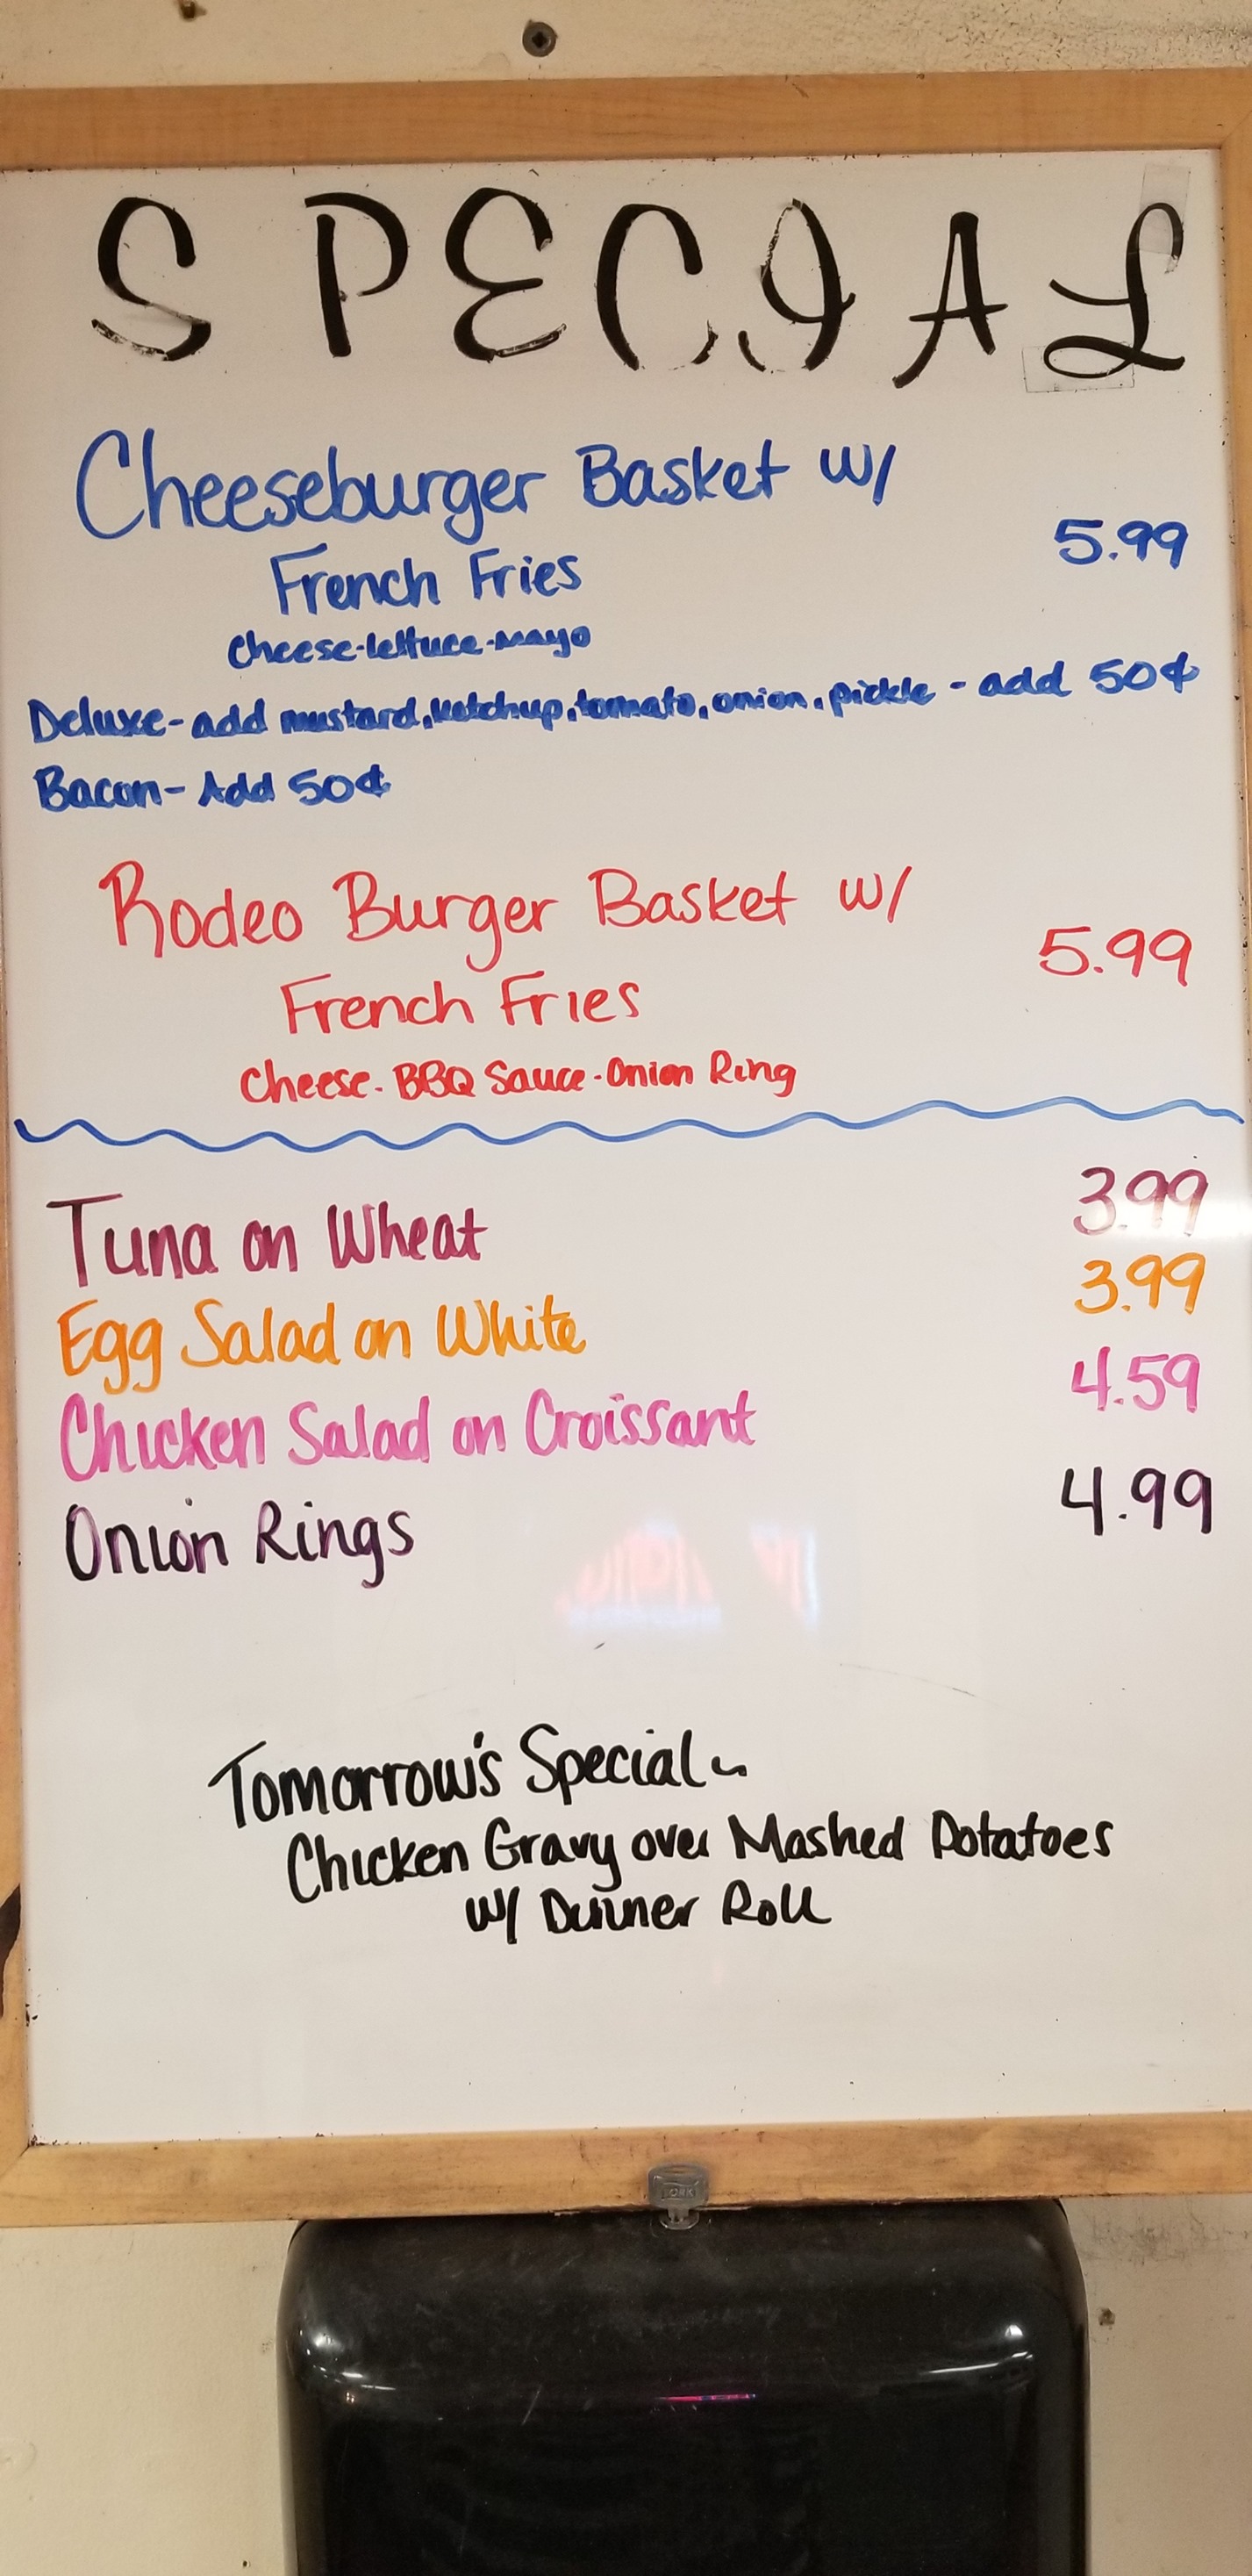 SPECIAL
Cheeseburger Basket w/
5.99
French Fries
Cheese-lettuce-mayo
Deluxe- add mustard, ketchup, tomato, onion, pickle - add 50¢
Bacon- Add 50¢
Rodeo Burger Basket w/
5.99
French Fries
Cheese- BBQ Sauce-Onion Ring
Tuna on Wheat 3.99
Egg Salad on White 3.99
Chicken Salad on Croissant 4.59
Onion Rings 4.99
Tomorrow's Special ~
Chicken Gravy over Mashed Potatoes
w/ Dinner Roll